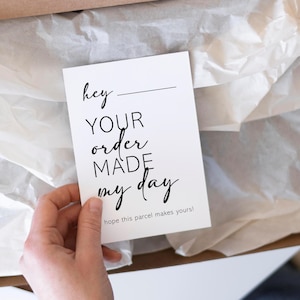 hey
YOUR
order
MADE
my day
hope this parcel makes yours!